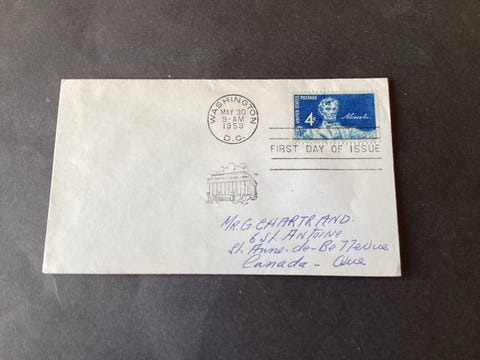 WASHINGTON
MAY 30
9-AM
1959
D.C.
UNITED STATES
POSTAGE
4¢
A. Lincoln
FIRST DAY OF ISSUE
MR. G. CHARTRAND.
6 St. ANTOINE
St. Anne-de-Bellevue
Canada - Que